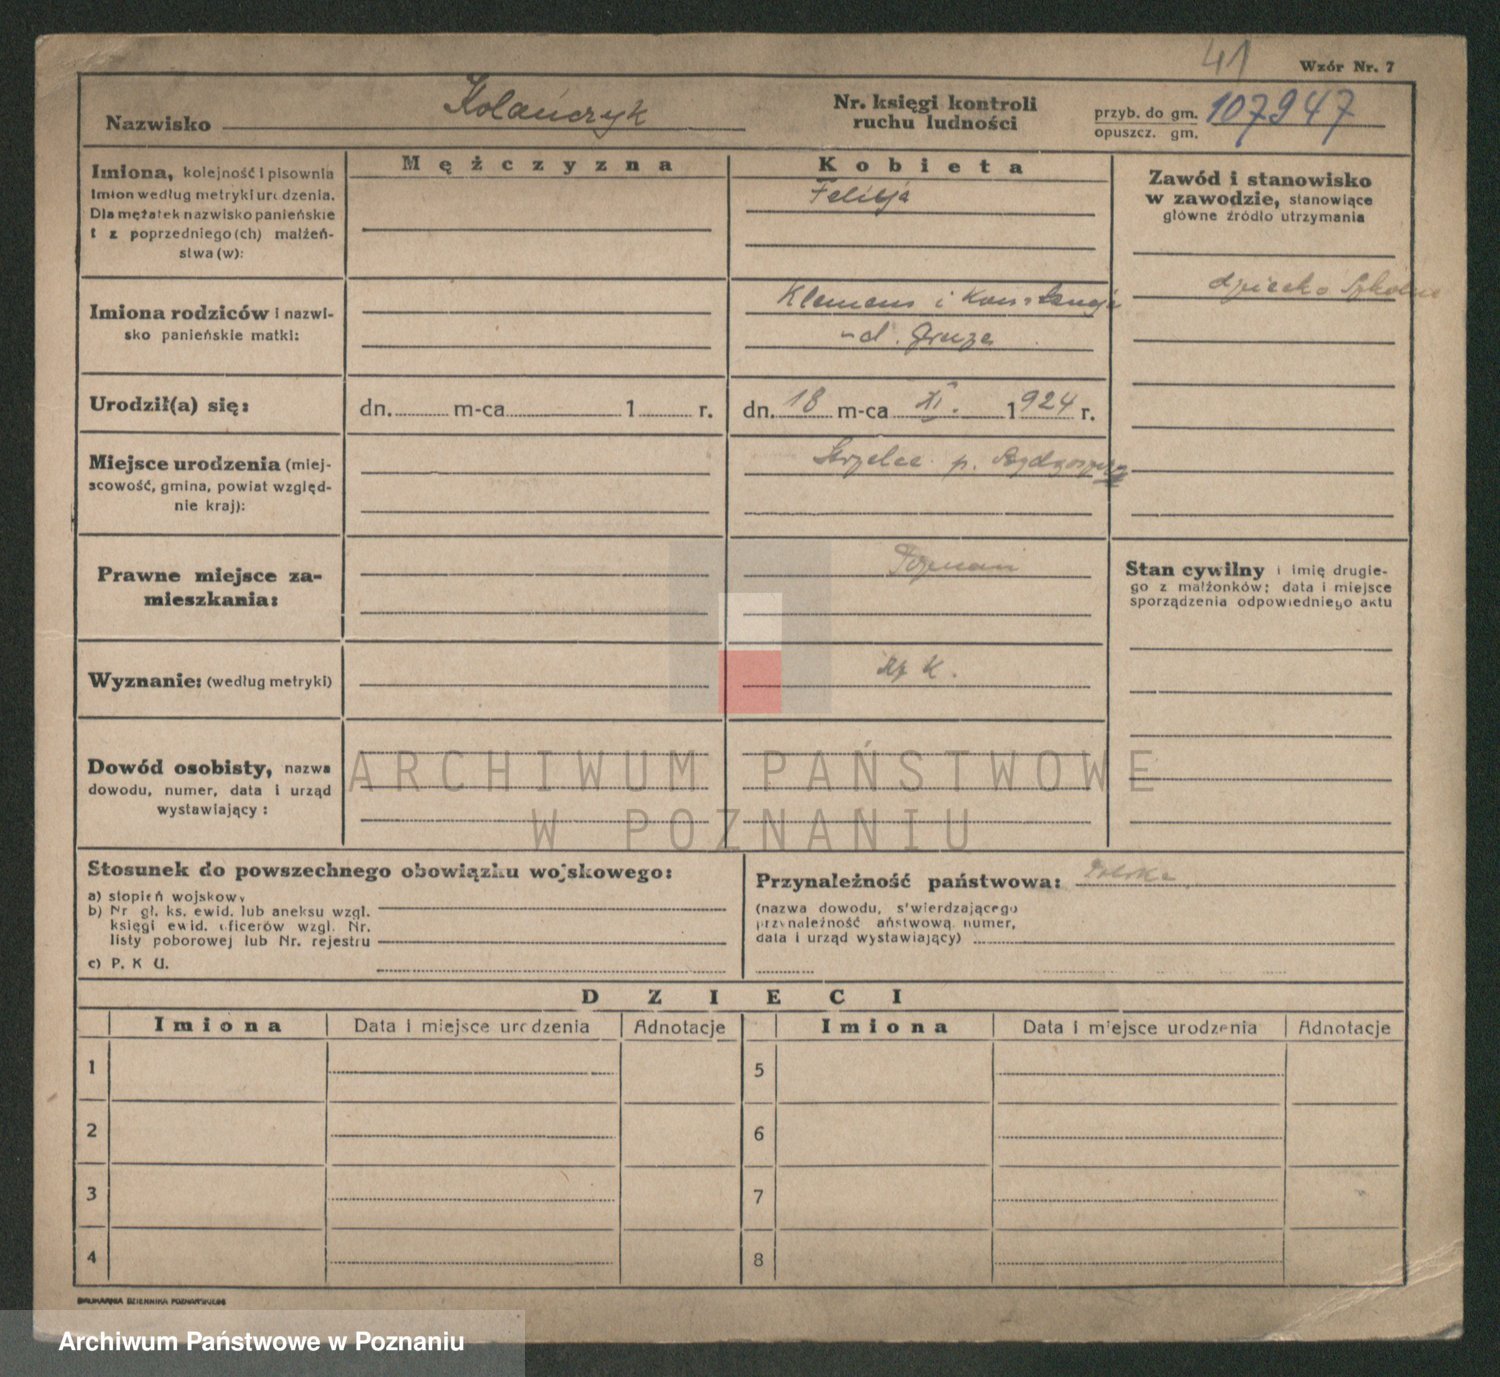 41
Wzór Nr. 7
Nazwisko Kolańczyk
Nr. księgi kontroli
ruchu ludności
przyb. do gm. 107947
opuszcz. gm.
Imiona, kolejność i pisownia
imion według metryki urodzenia.
Dla mężatek nazwisko panieńskie
i z poprzedniego (ch) małżeń-
stwa (w):
Mężczyzna
Kobieta
Felicja
Zawód i stanowisko
w zawodzie, stanowiące
główne źródło utrzymania
dziecko szkolne
Imiona rodziców i nazwi-
sko panieńskie matki:
Klemens i Konstancja
-d. Gruza
Urodził(a) się:
dn. m-ca 1 r.
dn. 18 m-ca XI. 1924 r.
Miejsce urodzenia (miej-
scowość, gmina, powiat względ-
nie kraj):
Strzelce p. Bydgoszcz
Prawne miejsce za-
mieszkania:
Poznań
Stan cywilny i imię drugie-
go z małżonków; data i miejsce
sporządzenia odpowiedniego aktu
Wyznanie: (według metryki)
rz K.
Dowód osobisty, nazwa
dowodu, numer, data i urząd
wystawiający :
ARCHIWUM PAŃSTWOWE
W POZNANIU
Stosunek do powszechnego obowiązku wojskowego:
a) stopień wojskowy
b) Nr gł. ks. ewid. lub aneksu wzgl.
księgi ewid. oficerów wzgl. Nr.
listy poborowej lub Nr. rejestru
c) P. K U.
Przynależność państwowa: Polska
(nazwa dowodu, stwierdzającego
przynależność państwową, numer,
data i urząd wystawiający)
DZIECI
Imiona Data i miejsce urodzenia Adnotacje Imiona Data i miejsce urodzenia Adnotacje
1 5
2 6
3 7
4 8
DRUKARNIA DZIENNIKA POZNAŃSKIEGO
Archiwum Państwowe w Poznaniu